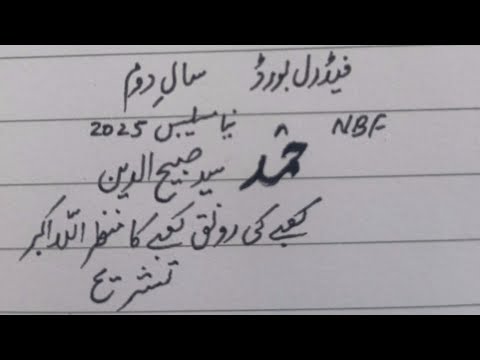 فیڈرل بورڈ سالِ دوم
NBF نیا سلیبس 2025
حمد سید صبیح الدین
کعبے کی رونق کعبے کا منظر اللہ اکبر
تشریح